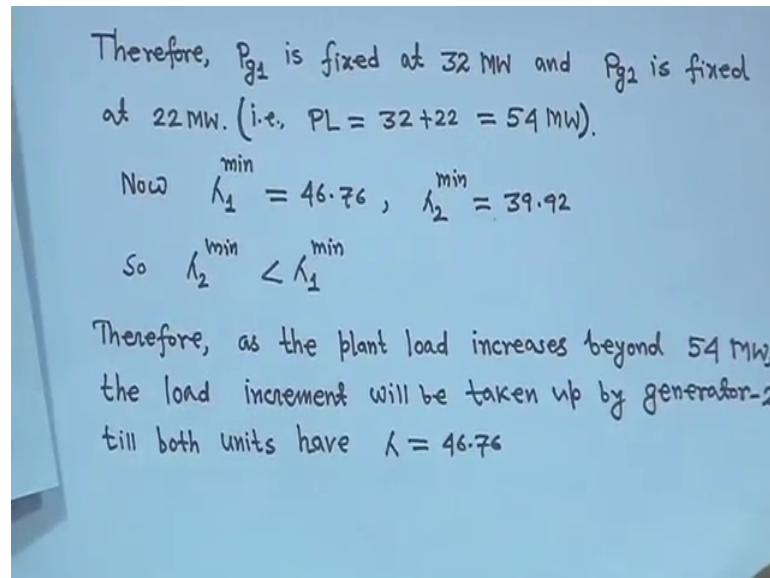 Therefore, Pg1 is fixed at 32 MW and Pg2 is fixed
at 22 MW. (i.e., PL = 32+22 = 54 MW).
Now λ1^min = 46.76 , λ2^min = 39.92
So λ2^min < λ1^min
Therefore, as the plant load increases beyond 54 MW,
the load increment will be taken up by generator-2
till both units have λ = 46.76